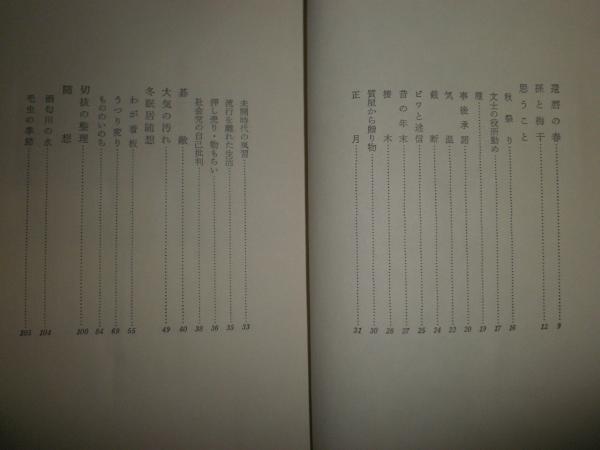 還暦の春 9
孫と梅干 12
思うこと
秋祭り 16
文士の役所勤め 17
雁 19
事後承諾 20
気温 22
裁断 24
ビワと迷信 25
昔の年末 27
接木 28
質屋から贈り物 30
正月 31
未開時代の風習 33
流行を離れた生活 35
押し売り・物もらい 36
社会党の自己批判 38
碁敵 40
大気の汚れ 49
冬眠居随想
わが看板 55
うつり変り 69
もののいのち 84
切抜の整理 100
随想
酒匂川の水 104
毛虫の季節 105